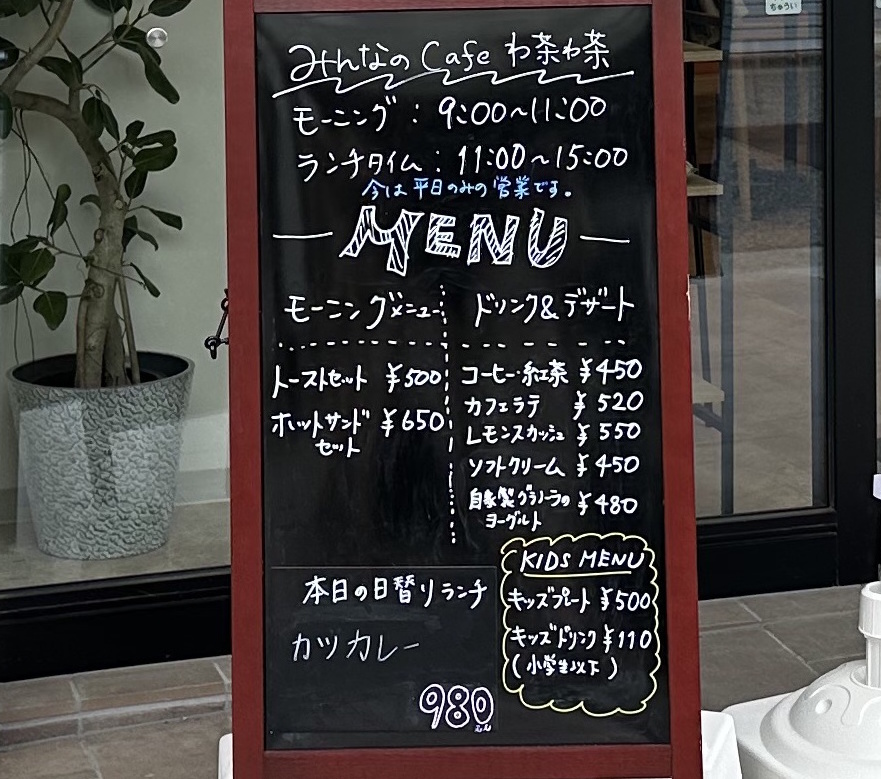 ちゅうい
みんなの Cafe わ茶わ茶
モーニング : 9:00～11:00
ランチタイム : 11:00～15:00
今は平日のみの営業です。
MENU
モーニングメニュー
トーストセット ¥500
ホットサンド ¥650
セット
ドリンク&デザート
コーヒー・紅茶 ¥450
カフェラテ ¥520
レモンスカッシュ ¥550
ソフトクリーム ¥450
自家製グラノーラの ¥480
ヨーグルト
本日の日替りランチ
カツカレー
980えん
KIDS MENU
キッズプレート ¥500
キッズドリンク ¥110
(小学生以下)